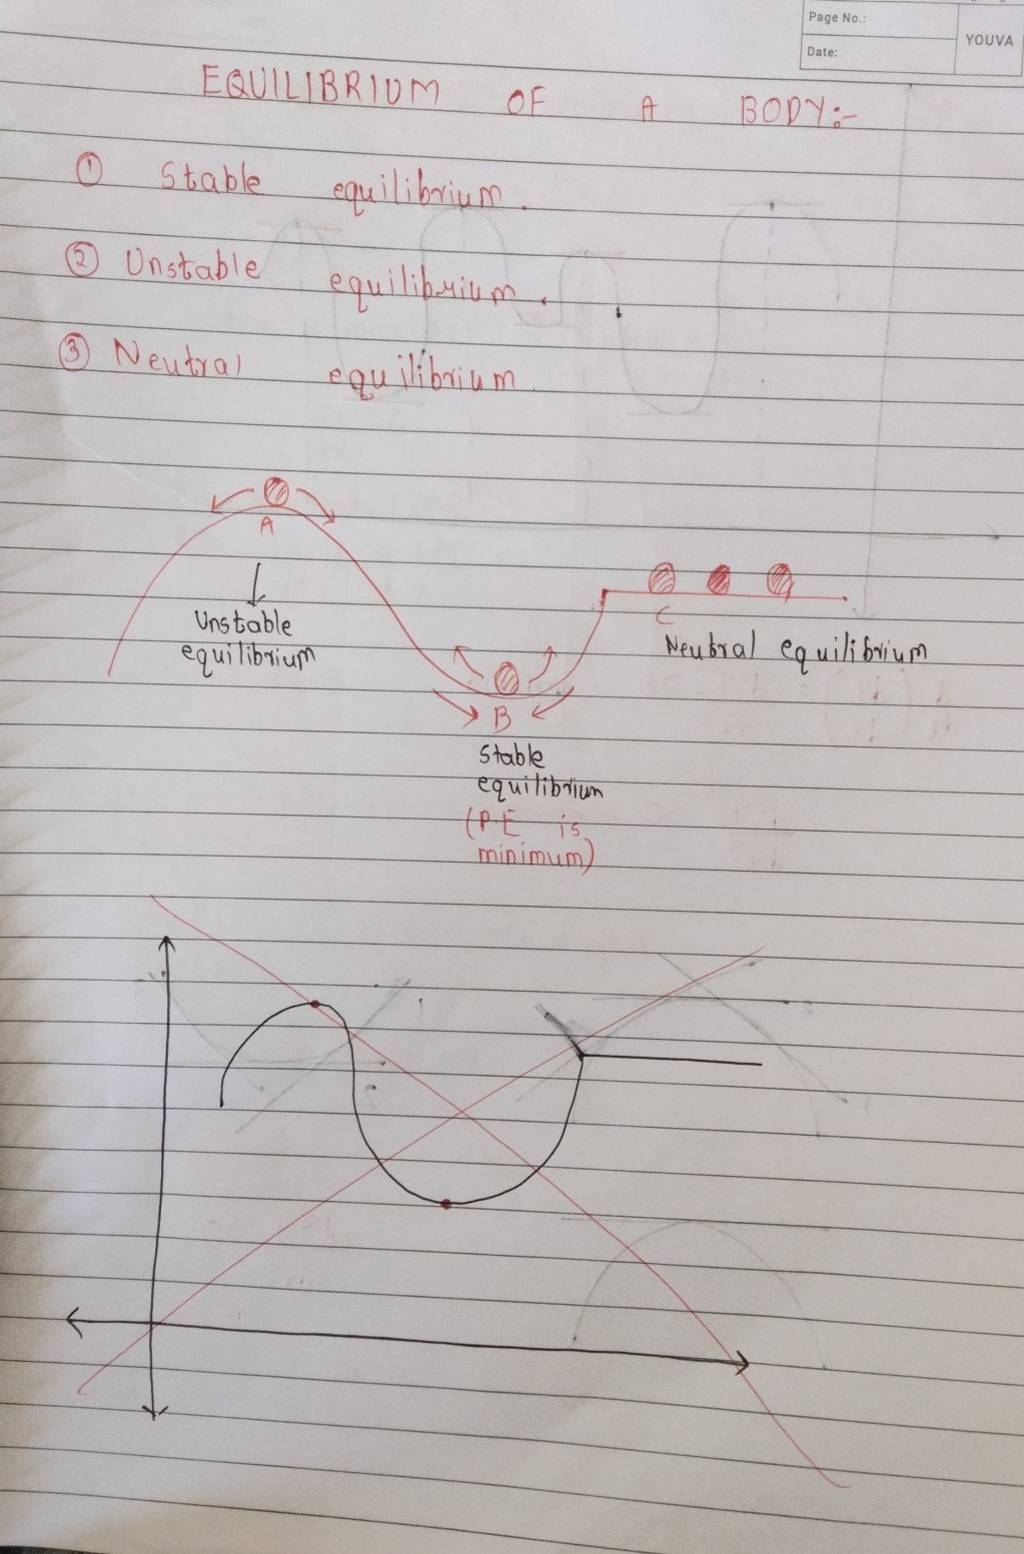 Page No.:
Date:
YOUVA
EQUILIBRIUM OF A BODY:-
① Stable equilibrium.
② Unstable equilibrium.
③ Neutral equilibrium
A
Unstable
equilibrium
C
Neutral equilibrium
B
Stable
equilibrium
(P.E is
minimum)